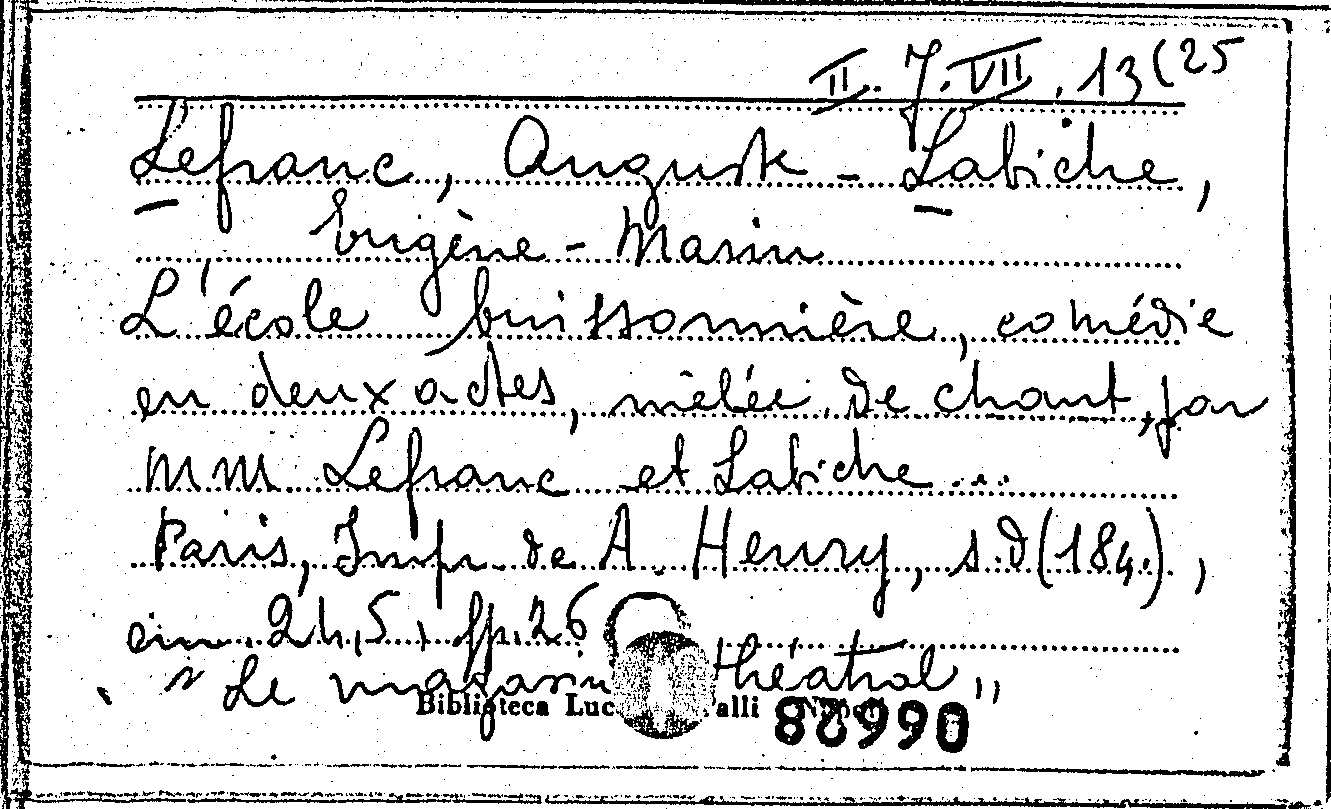 II. J. VII. 13(25
Lefranc, Auguste - Labiche,
Eugène - Marin
L'école buissonnière, comédie
en deux actes, mêlée de chant, par
MM Lefranc et Labiche...
Paris, Impr. de A. Henry, s.d (184.),
cm. 24,5, pp. 26
" Le magasin théatral "
Biblioteca